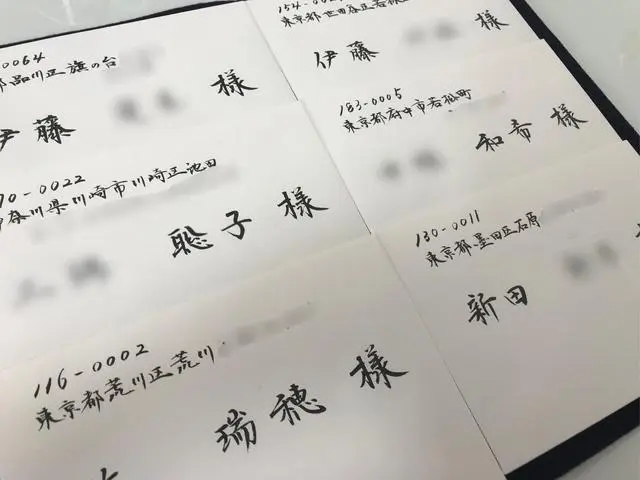 0064
品川区旗の台
伊藤 様
154-002
東京都世田谷区若林
伊藤 様
0-0022
奈川県川崎市川崎区池田
聡子 様
183-0005
東京都府中市若松町
和希 様
116-0002
東京都荒川区荒川
瑞穂 様
130-0011
東京都墨田区石原
新田